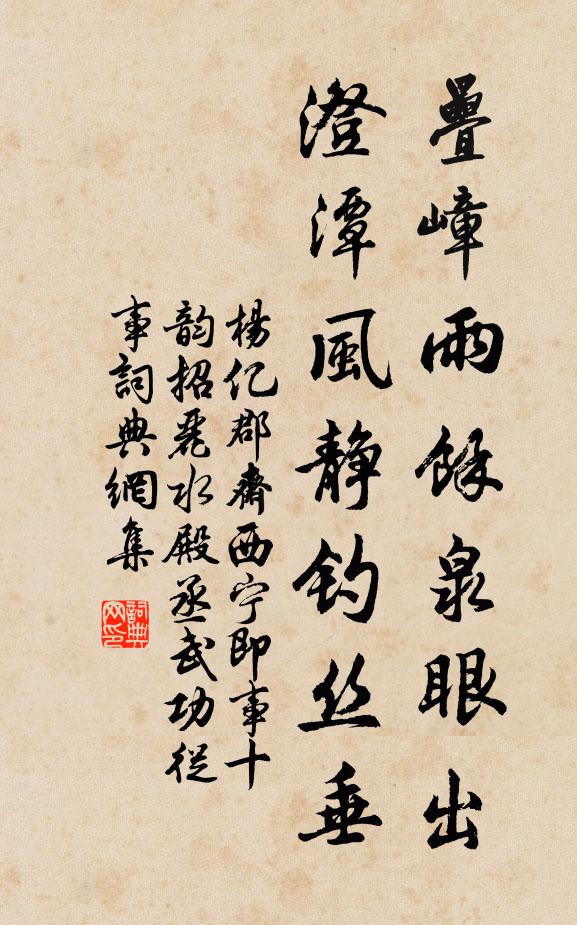 疊嶂雨餘泉眼出
澄潭風靜釣丝垂
楊亿郡齋西宁即事十
韵招麗水殿丞武功從
事詞典網集
詞典网印